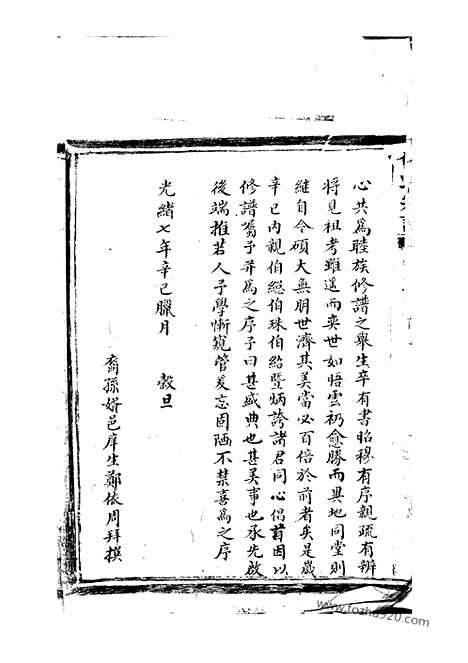 心共為睦族修譜之舉生卒有書昭穆有序親疏有辨
將見祖考雖遥而奕世如悟雲礽愈勝而異地同堂則
継自今碩大無朋世濟其美當必百倍於前者矣是歲
辛巳内親伯總伯珠伯紿暨炳誇諸君同心倡首因以
修譜嘱予并為之序予曰甚盛典也甚美事也承先啟
後端推若人予學慚窺管爰忘固陋不禁喜為之序
光緒七年辛巳臘月 穀旦
裔孫婿邑庠生鄭依周拜撰
www.fozhu920.com